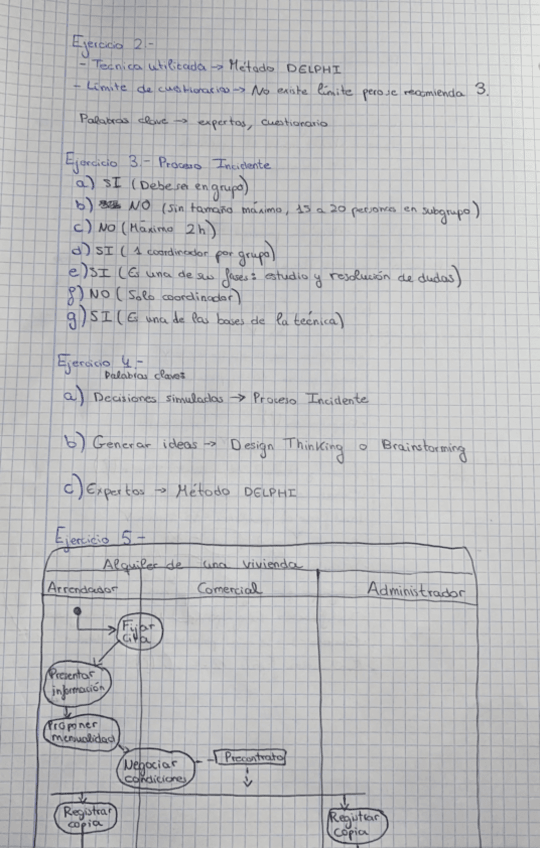 Ejercicio 2.-
- Tecnica utilizada → Método DELPHI
- Límite de cuestionarios → No existe límite pero se recomienda 3.
Palabras clave → expertos, cuestionario
Ejercicio 3.- Proceso Incidente
a) SI (Debe ser en grupo)
b) NO (Sin tamaño máximo, 15 a 20 personas en subgrupo)
c) NO (Máximo 2h)
d) SI (1 coordinador por grupo)
e) SI (Es una de sus fases: estudio y resolución de dudas)
f) NO (Solo coordinador)
g) SI (Es una de las bases de la técnica)
Ejercicio 4.-
Palabras claves
a) Decisiones simuladas → Proceso Incidente
b) Generar ideas → Design Thinking o Brainstorming
c) Expertos → Método DELPHI
Ejercicio 5-
Alquiler de una vivienda
Arrendador Comercial Administrador
Fijar
cita
Presentar
información
Proponer
mensualidad
Negociar
condiciones
Precontrato
Registrar
copia
Registrar
copia